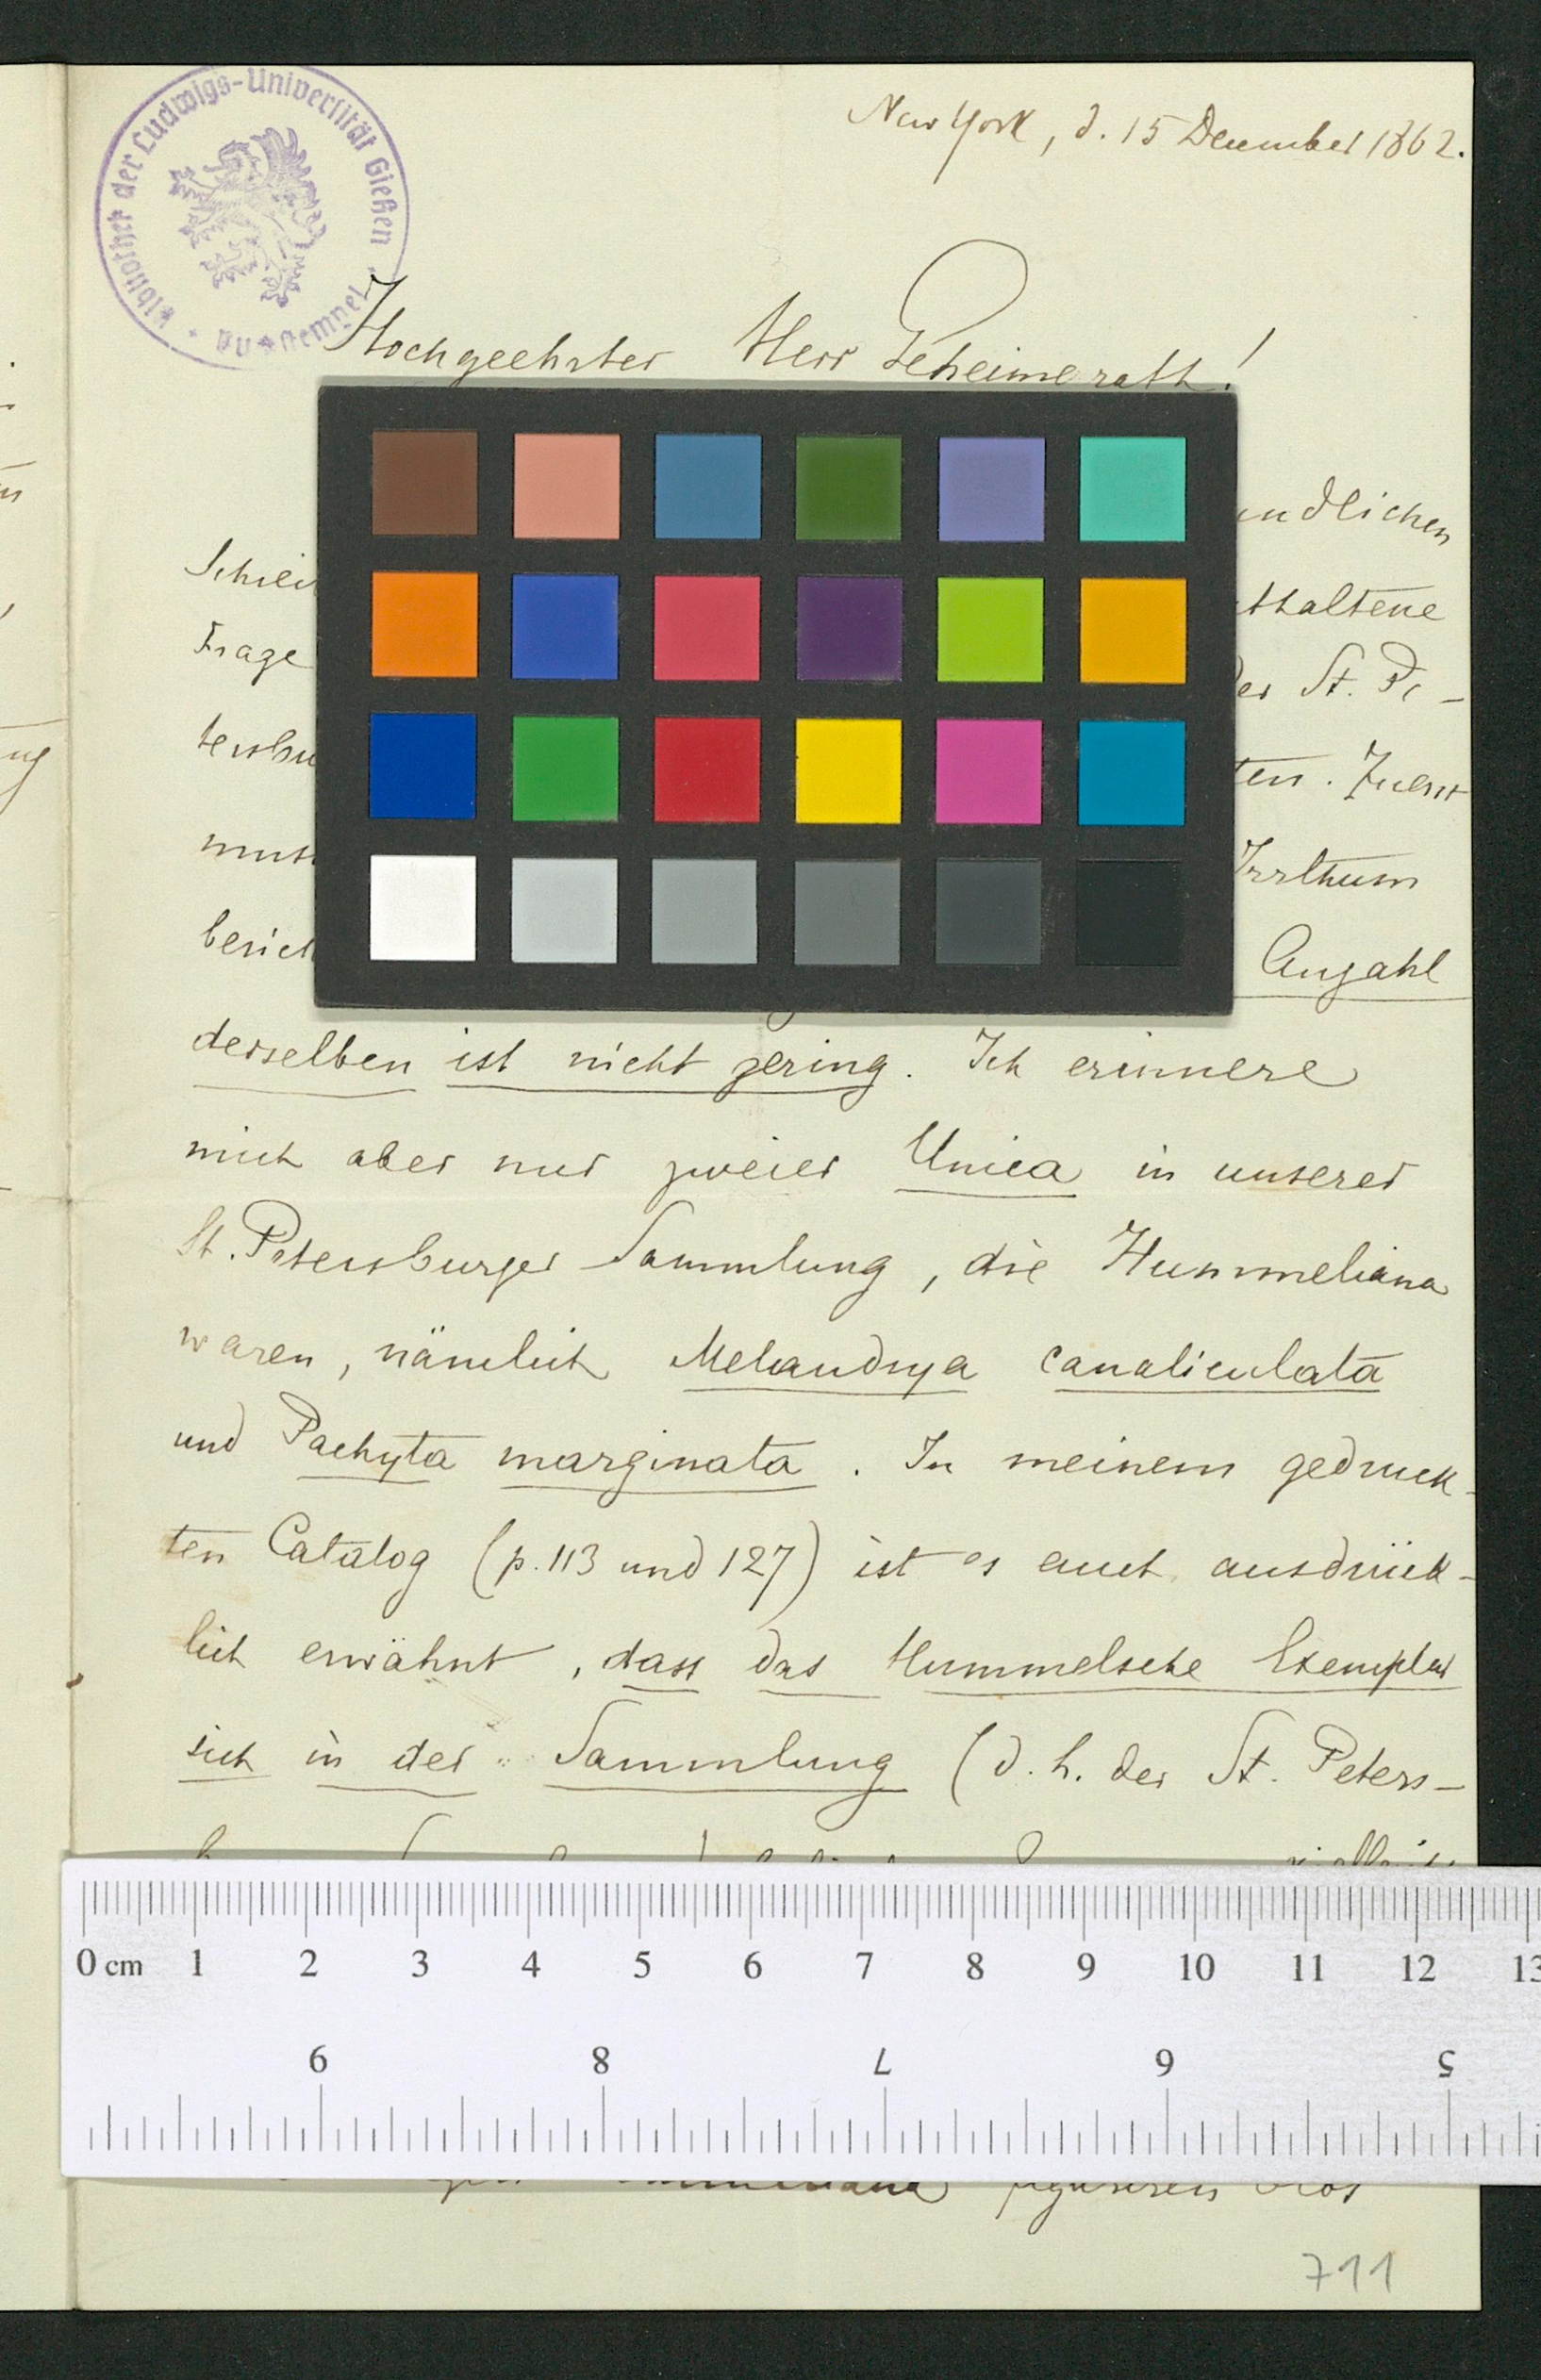 Bibliothek der Ludwigs-Universität Gießen
New York, d. 15 December 1862.
Hochgeehrter Herr Geheimerath!
ndlichen
Schrei
thaltene
Frage
der St. Pe-
tersbu
ten. Zuerst
muss
Irrthum
berich
Anzahl
derselben ist nicht gering. Ich erinnere
mich aber nur zweier Unica in unserer
St. Petersburger Sammlung, die Hummeliana
waren, nämlich Melandrya canaliculata
und Pachyta marginata. In meinem gedruck-
ten Catalog (p. 113 und 127) ist es auch ausdrück-
lich erwähnt, dass das Hummelsche Exemplar
sich in der Sammlung (d. h. der St. Peters-
0 cm 1 2 3 4 5 6 7 8 9 10 11 12 13
9 8 7 6 5
figuriren blos
711